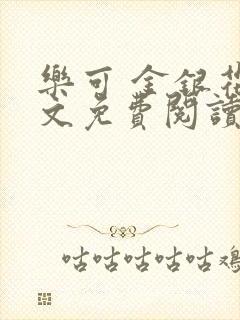 樂可 金銀花
文免費閱讀
咕咕咕咕咕雞